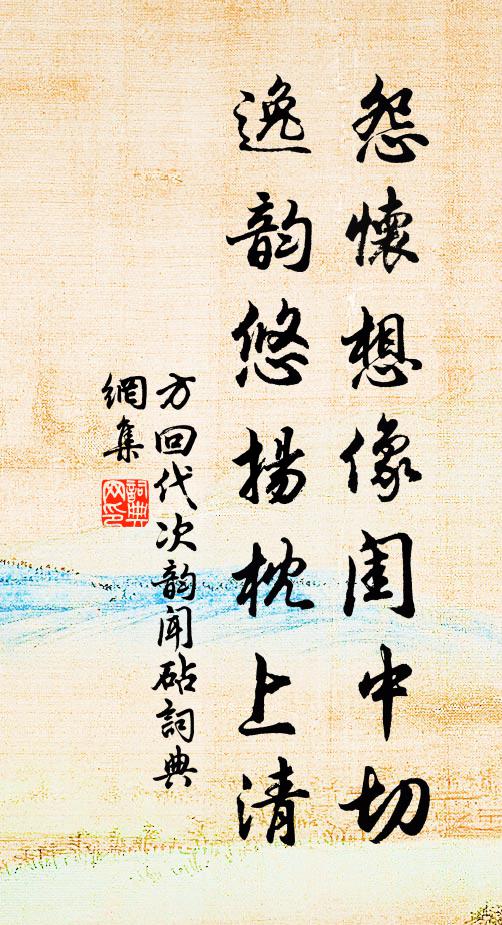 怨懷想像閨中切
逸韵悠揚枕上清
方回代次韵聞砧詞典
網集
詞典網印